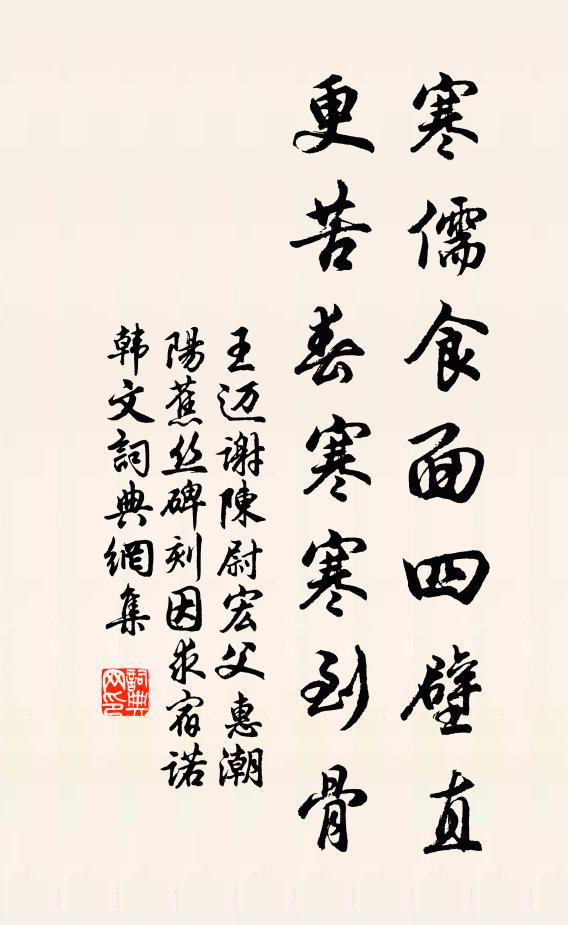 寒儒食面四壁直
更苦春寒寒到骨
王迈謝陳尉宏父惠潮
陽蕉丝碑刻因求宿诺
韩文詞典網集
詞典网印